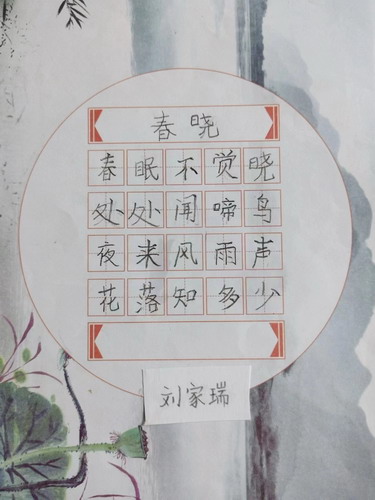 春晓
春眠不觉晓
处处闻啼鸟
夜来风雨声
花落知多少
刘家瑞